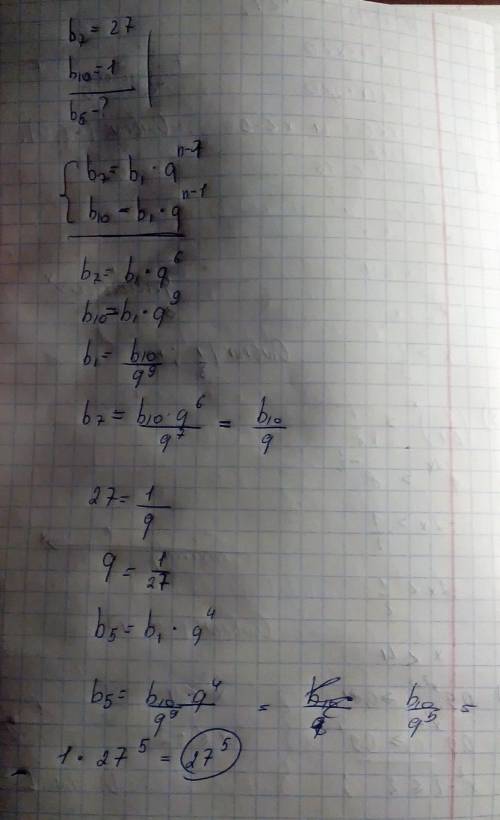 b₇ = 27
b₁₀ = 1
b₅ - ?
{ b₇ = b₁ · qⁿ⁻¹
b₁₀ = b₁ · qⁿ⁻¹
b₇ = b₁ · q⁶
b₁₀ = b₁ · q⁹
b₁ = b₁₀/q⁹
b₇ = b₁₀ · q⁶/q⁷ = b₁₀/q
27 = 1/q
q = 1/27
b₅ = b₁ · q⁴
b₅ = b₁₀ · q⁴/q⁹ = b₁₀/q⁵ =
1 · 27⁵ = 27⁵